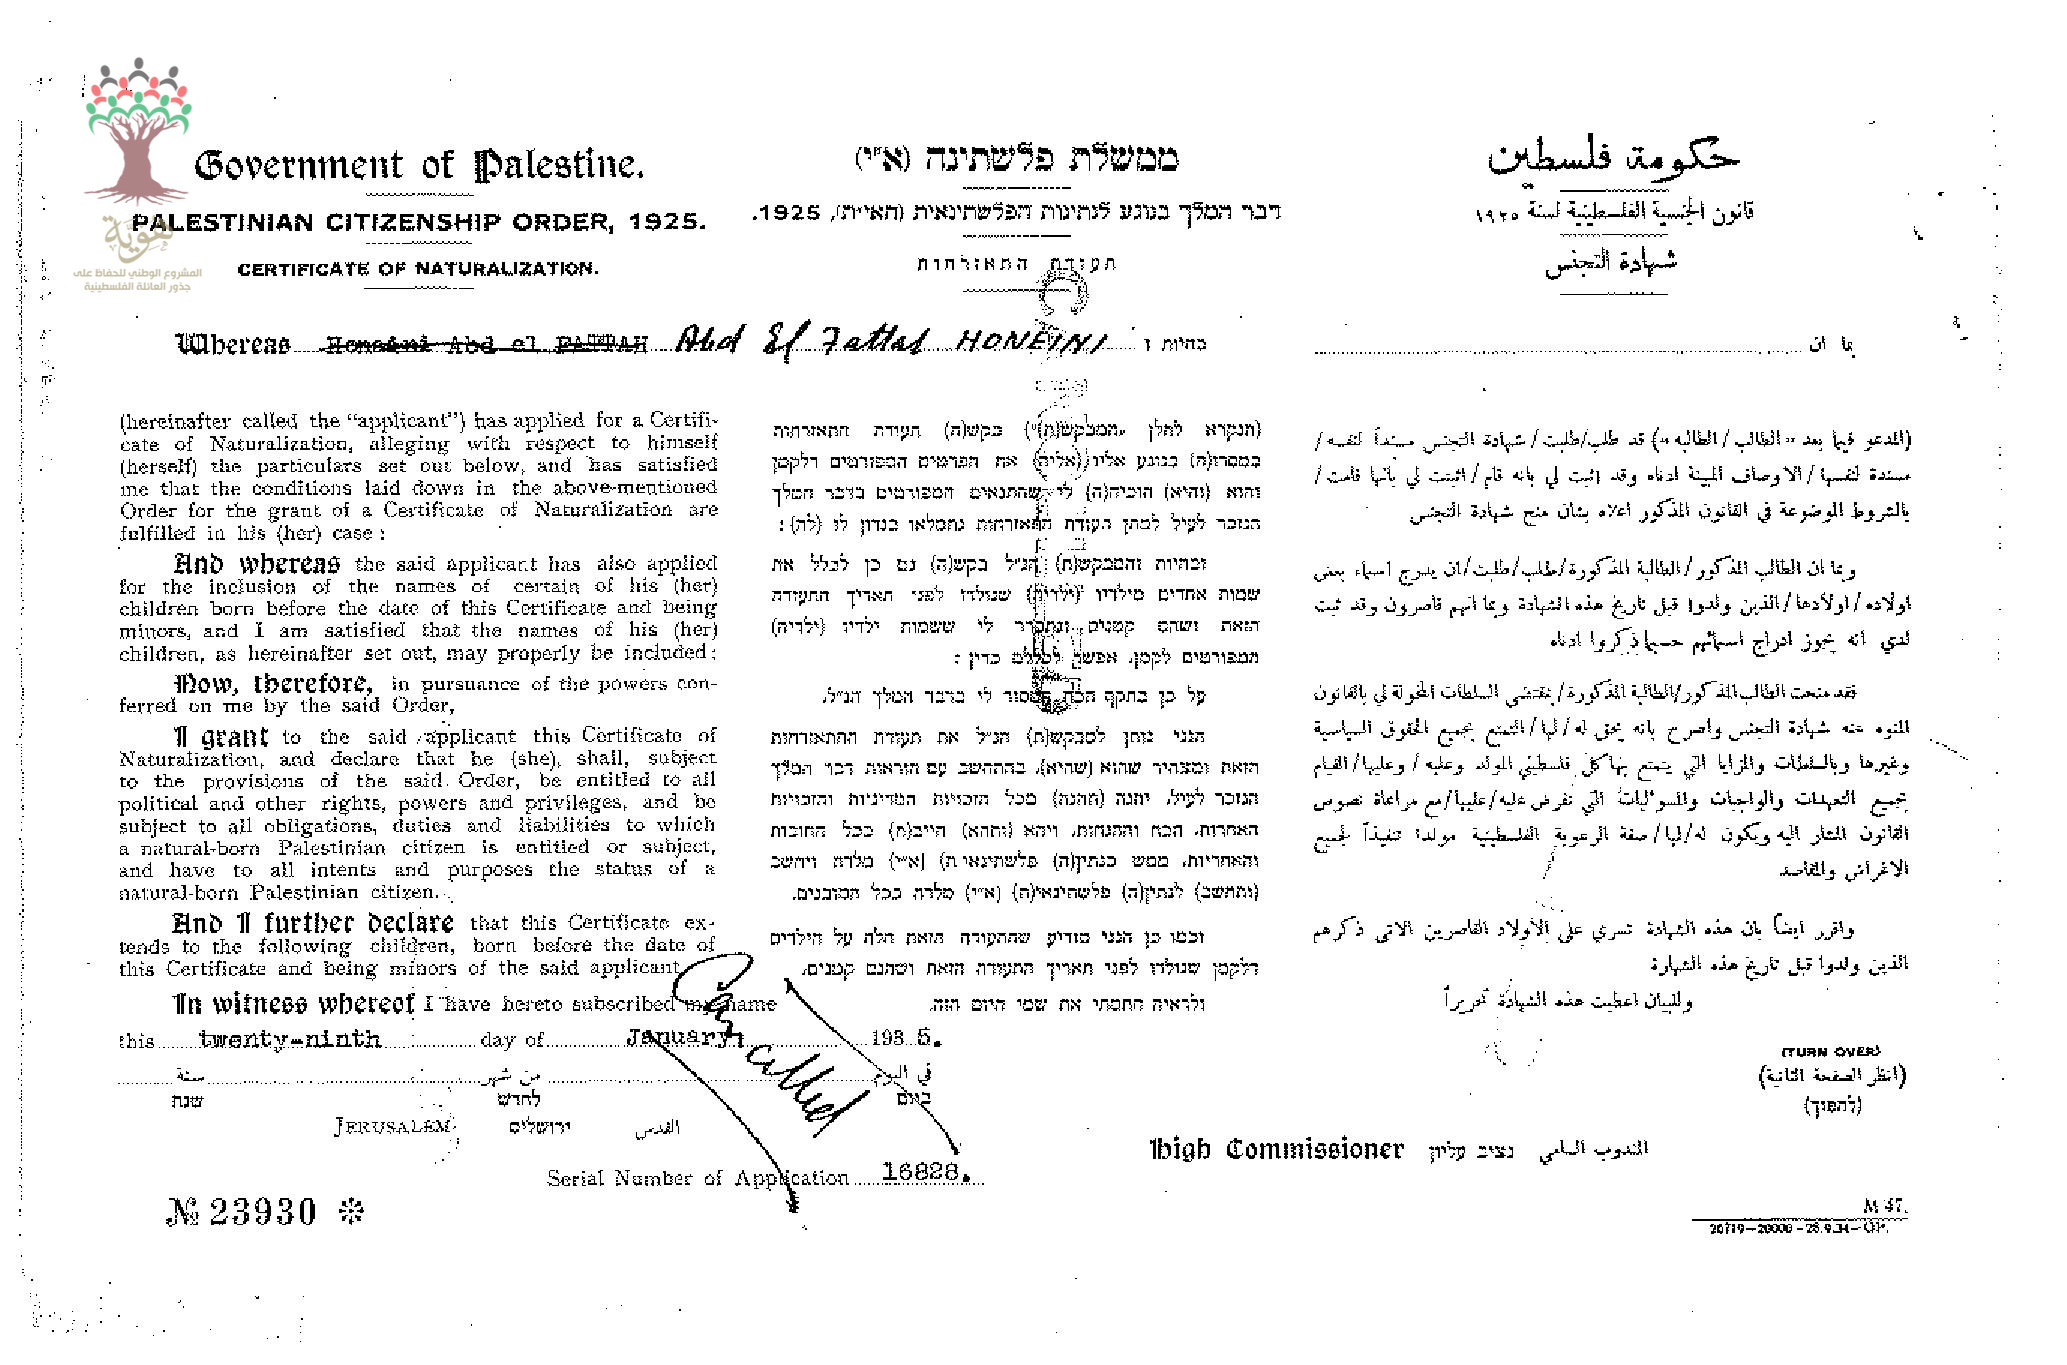 هوية
المشروع الوطني للحفاظ على
جذور العائلة الفلسطينية
Government of Palestine.
PALESTINIAN CITIZENSHIP ORDER, 1925.
CERTIFICATE OF NATURALIZATION.
ממשלת פלשתינה (א״י)
דבר המלך בנוגע לנתינות הפלשתינאית (הא״ית), 1925.
תעודת התאזרחות
حكومة فلسطين
قانون الجنسية الفلسطينية لسنة ١٩٢٥
شهادة التجنس
Whereas Honeini Abd el FATTAH Abd El Fattah HONEINI
בהיות ו
بما ان
(hereinafter called the “applicant”) has applied for a Certifi-
cate of Naturalization, alleging with respect to himself
(herself) the particulars set out below, and has satisfied
me that the conditions laid down in the above-mentioned
Order for the grant of a Certificate of Naturalization are
fulfilled in his (her) case :
And whereas the said applicant has also applied
for the inclusion of the names of certain of his (her)
children born before the date of this Certificate and being
minors, and I am satisfied that the names of his (her)
children, as hereinafter set out, may properly be included :
Now, therefore, in pursuance of the powers con-
ferred on me by the said Order,
I grant to the said applicant this Certificate of
Naturalization, and declare that he (she), shall, subject
to the provisions of the said Order, be entitled to all
political and other rights, powers and privileges, and be
subject to all obligations, duties and liabilities to which
a natural-born Palestinian citizen is entitled or subject,
and have to all intents and purposes the status of a
natural-born Palestinian citizen.
And I further declare that this Certificate ex-
tends to the following children, born before the date of
this Certificate and being minors of the said applicant
In witness whereof I have hereto subscribed my name
this twenty-ninth day of January, 1935.
(הנקרא להלן „המבקש(ת)”) בקש(ה) תעודת התאזרחות
במסרו(ה) בנוגע אליו (אליה) את הפרטים המפורטים דלקמן
והוא (והיא) הוכיח(ה) לי שהתנאים המפורטים בדבר המלך
הנזכר לעיל למתן תעודת התאזרחות נתמלאו בנדון לו (לה) :
ובהיות והמבקש(ת) הנ״ל בקש(ה) גם כן לכלל את
שמות אחדים מילדיו (ילדיה) שנולדו לפני תאריך התעודה
הזאת ושהם קטנים ונתברר לי ששמות ילדיו (ילדיה)
המפורטים לקמן, אפשר לכללם כדין :
על כן בתקף הכח המסור לי בדבר המלך הנ״ל,
הנני נותן למבקש(ת) הנ״ל את תעודת ההתאזרחות
הזאת ומצהיר שהוא (שהיא), בהתחשב עם הוראות דבר המלך
הנזכר לעיל, יהנה (תהנה) מכל הזכויות המדיניות והזכויות
האחרות, הכח וההנחות, ויהא (ותהא) חייב(ת) בכל החובות
והאחריות, ממש כנתין(ה) פלשתינאי(ת) (א״י) מלדה ויחשב
(ותחשב) לנתין(ה) פלשתינאי(ת) (א״י) מלדה בכל המובנים.
וכמו כן הנני מודיע שהתעודה הזאת חלה על הילדים
דלקמן שנולדו לפני תאריך התעודה הזאת ושהנם קטנים.
ולראיה חתמתי את שמי היום הזה.
(المدعو فيما بعد «الطالب/الطالبه») قد طلب/طلبت/ شهادة التجنس مسنداً لنفسه/
مسندة لنفسها/الاوصاف المبينة ادناه وقد اثبت لي بانه قام/اثبتت لي بانها قامت/
بالشروط الموضوعة في القانون المذكور اعلاه بشان منح شهادة التجنس
وبما ان الطالب المذكور/الطالبة المذكورة/طلب/طلبت/ان يدرج اسماء بعض
اولاده/اولادها/الذين ولدوا قبل تاريخ هذه الشهادة وبما انهم قاصرون وقد ثبت
لدي انه يجوز ادراج اسمائهم حسبما ذكروا ادناه
فقد منحت الطالب المذكور/الطالبة المذكورة/بمقتضى السلطات المخولة لي بالقانون
المنوه عنه شهادة التجنس واصرح بانه يحق له/لها/التمتع بجميع الحقوق السياسية
وغيرها وبالسلطات والمزايا التي يتمتع بها كل فلسطيني المولد وعليه/وعليها/القيام
بجميع التعهدات والواجبات والمسوليات التي تفرض عليه/عليها/مع مراعاة نصوص
القانون المشار اليه ويكون له/لها/صفة الرعوية الفلسطينية مولداً تنفيذاً لجميع
الاغراض والمقاصد
واقرر ايضاً بان هذه الشهادة تسري على الأولاد القاصرين الآتي ذكرهم
الذين ولدوا قبل تاريخ هذه الشهادة
وللبيان اعطيت هذه الشهادة تحريراً
في اليوم من شهر سنة
ביום לחדש שנת
JERUSALEM ירושלים القدس
(TURN OVER)
(انظر الصفحة الثانية)
(להפוך)
High Commissioner נציב עליון المندوب السامي
Serial Number of Application 16828.
№ 23930 ※
M 47.
20719—20000—28.9.34—